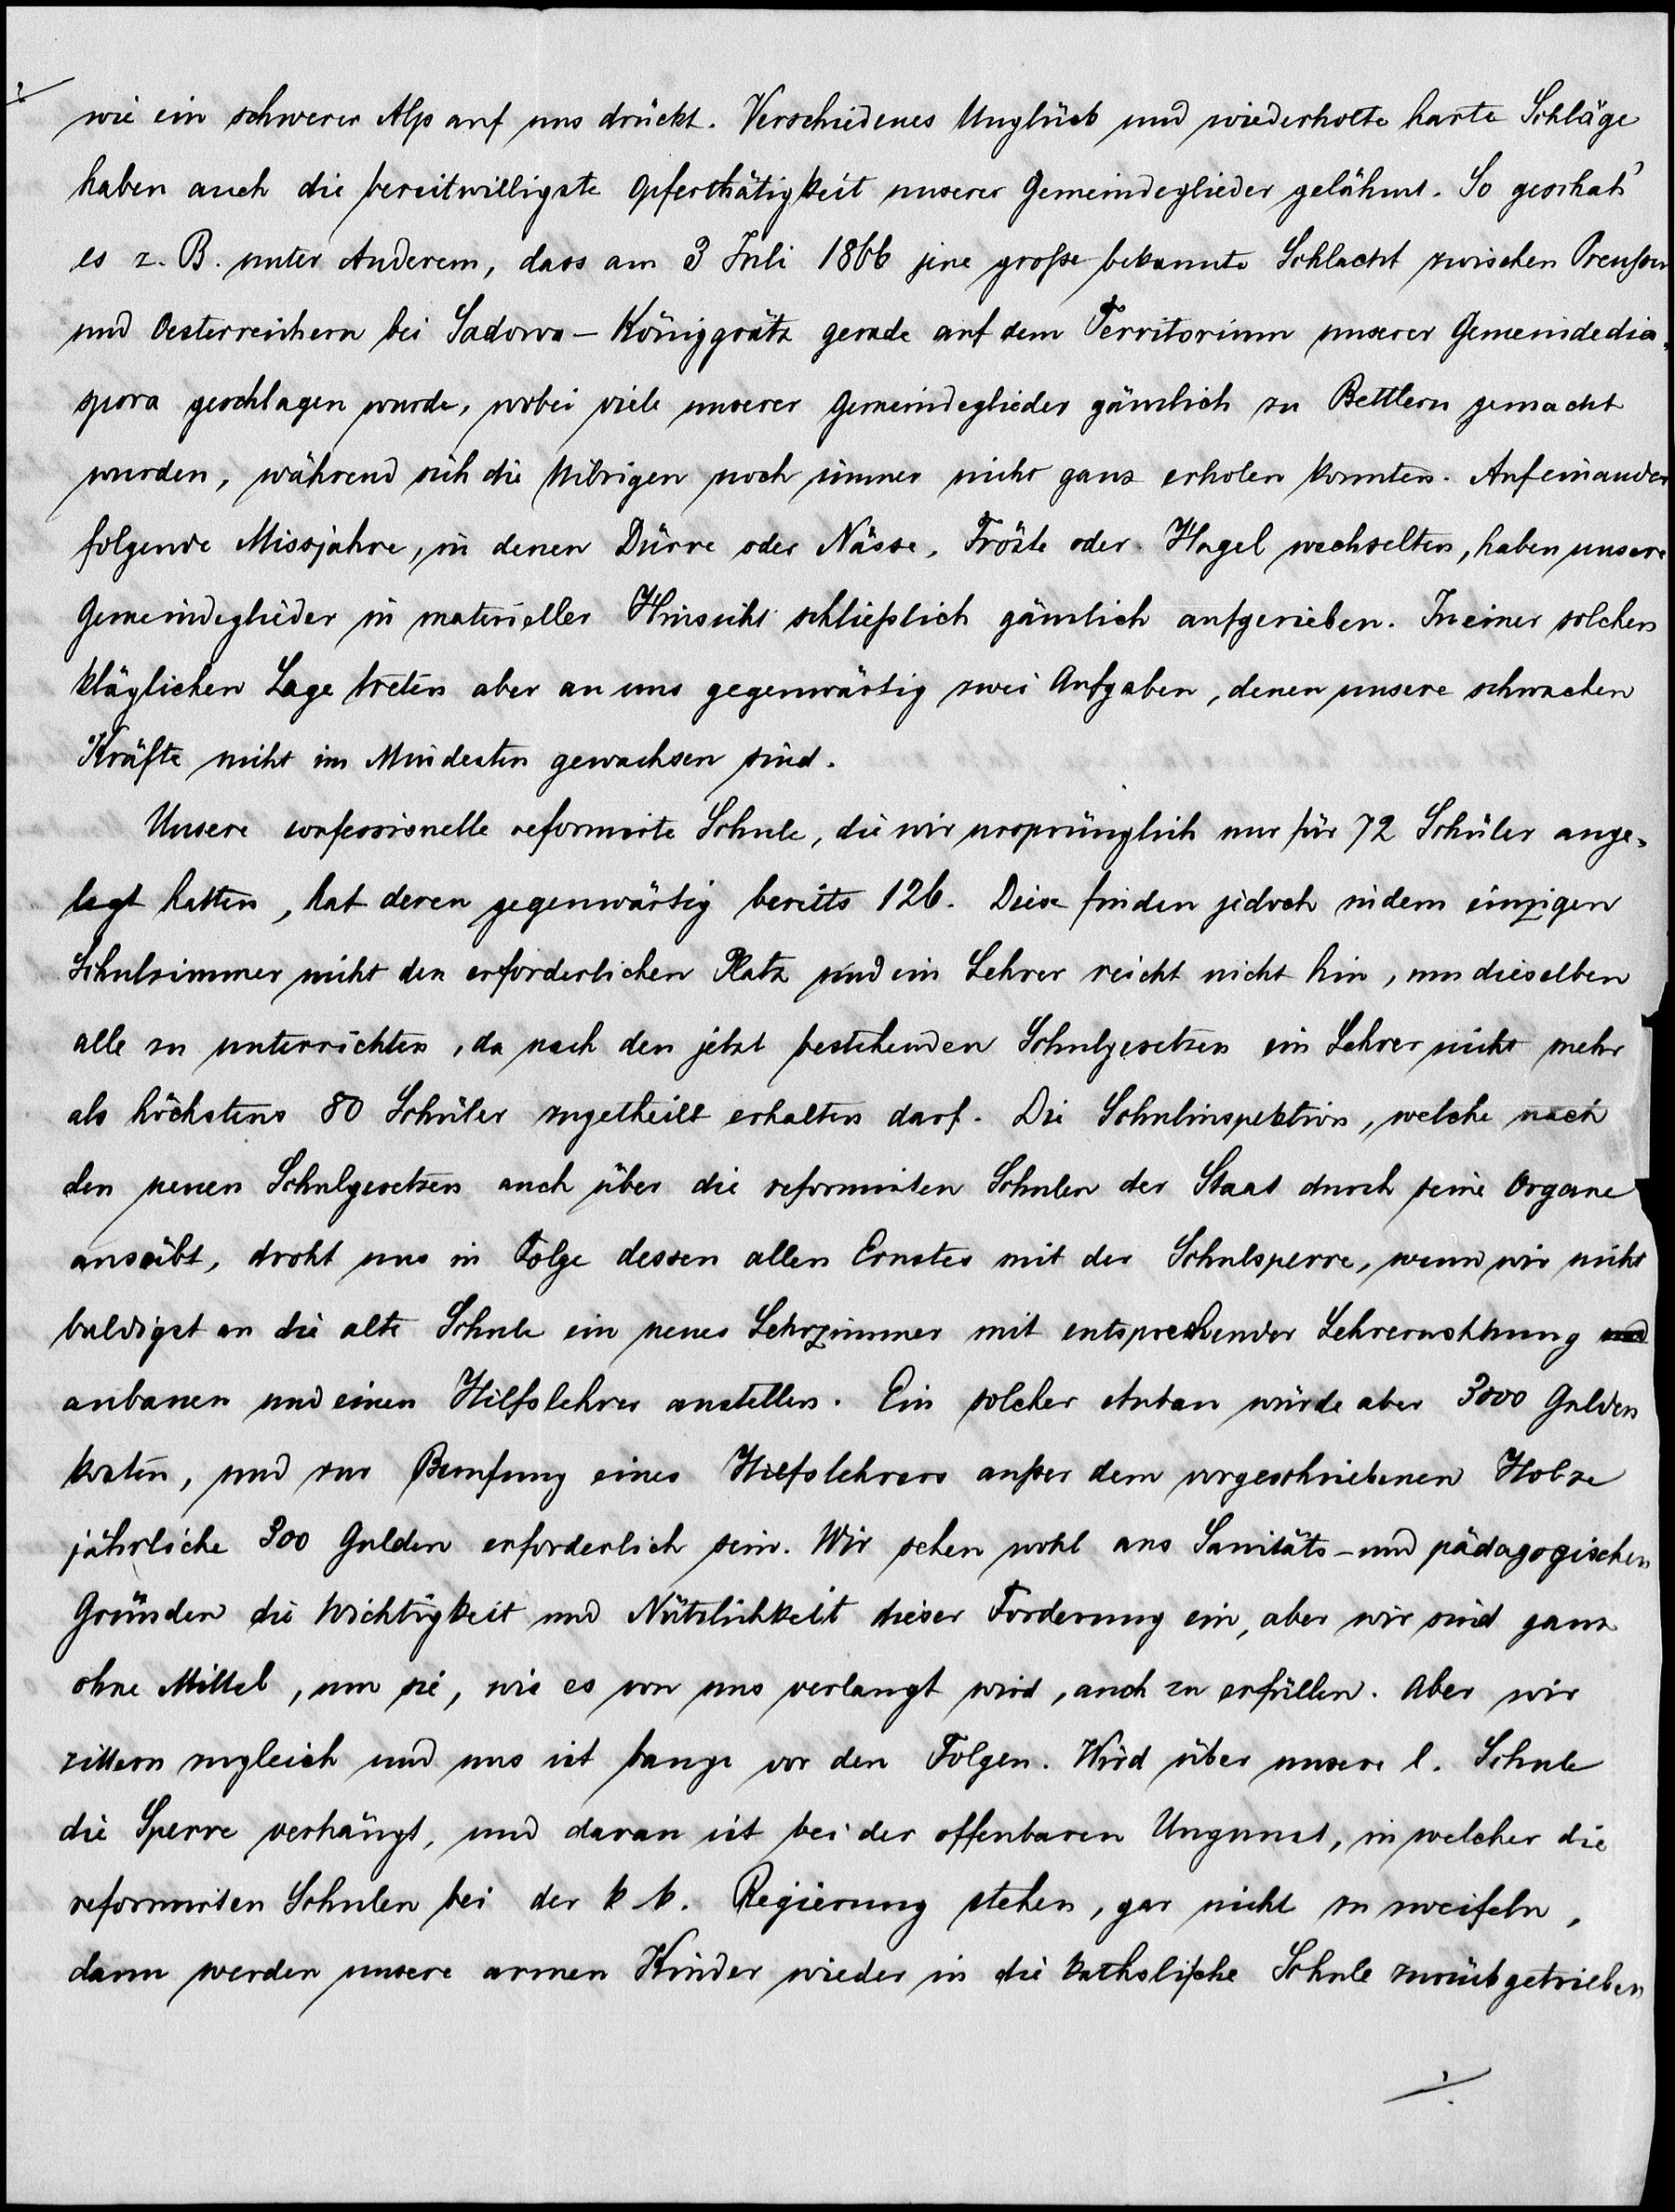 wie ein schwerer Alp auf uns drückt. Verschiedenes Unglück und wiederholte harte Schläge
haben auch die bereitwilligste Opferthätigkeit unserer Gemeindeglieder gelähmt. So geschah's
es z. B. unter Anderem, dass am 3 Juli 1866 jene große bekannte Schlacht zwischen Preußen
und Oesterreichern bei Sadowa - Königgrätz gerade auf dem Territorium unserer Gemeindedia-
spora geschlagen wurde, wobei viele unserer Gemeindeglieder gänzlich zu Bettlern gemacht
wurden, während sich die Uibrigen noch immer nicht ganz erholen konnten. Aufeinander
folgende Missjahre, in denen Dürre oder Nässe, Fröste oder Hagel wechselten, haben unsere
Gemeindeglieder in materieller Hinsicht schließlich gänzlich aufgerieben. In einer solchen
kläglichen Lage treten aber an uns gegenwärtig zwei Aufgaben, denen unsere schwachen
Kräfte nicht im Mindesten gewachsen sind.
Unsere confessionelle reformirte Schule, die wir ursprünglich nur für 72 Schüler ange-
legt hatten, hat deren gegenwärtig bereits 126. Diese finden jedoch in dem einzigen
Schulzimmer nicht den erforderlichen Platz und ein Lehrer reicht nicht hin, um dieselben
alle zu unterrichten, da nach den jetzt bestehenden Schulgesetzen ein Lehrer nicht mehr
als höchstens 80 Schüler zugetheilt erhalten darf. Die Schulinspektion, welche nach
den neuen Schulgesetzen auch über die reformirten Schulen der Staat durch seine Organe
ausübt, droht uns in Folge dessen allen Ernstes mit der Schulsperre, wenn wir nicht
baldigst an die alte Schule ein neues Lehrzimmer mit entsprechender Lehrerwohnung und
anbauen und einen Hilfslehrer anstellen. Ein solcher Anbau würde aber 3000 Gulden
kosten, und zur Berufung eines Hilfslehrers außer dem vorgeschriebenen Holze
jährliche 300 Gulden erforderlich sein. Wir sehen wohl aus Sanitäts- und pädagogischen
Gründen die Wichtigkeit und Nützlichkeit dieser Forderung ein, aber wir sind ganz
ohne Mittel, um sie, wie es von uns verlangt wird, auch zu erfüllen. Aber wir
zittern zugleich und uns ist bange vor den Folgen. Wird über unsere l. Schule
die Sperre verhängt, und daran ist bei der offenbaren Ungunst, in welcher die
reformirten Schulen bei der k k. Regierung stehen, gar nicht zu zweifeln,
dann werden unsere armen Kinder wieder in die katholische Schule zurückgetrieben